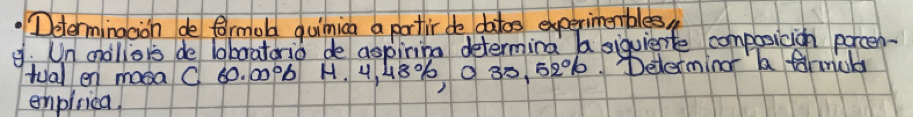 • Determinación de fórmula química a partir de datos experimentales,,
g. Un análisis de laboratorio de aspirina determina la siguiente composición porcen-
tual en masa C 60.00% H. 4,48%, O 35,52%. Determinar la fórmula
empírica.